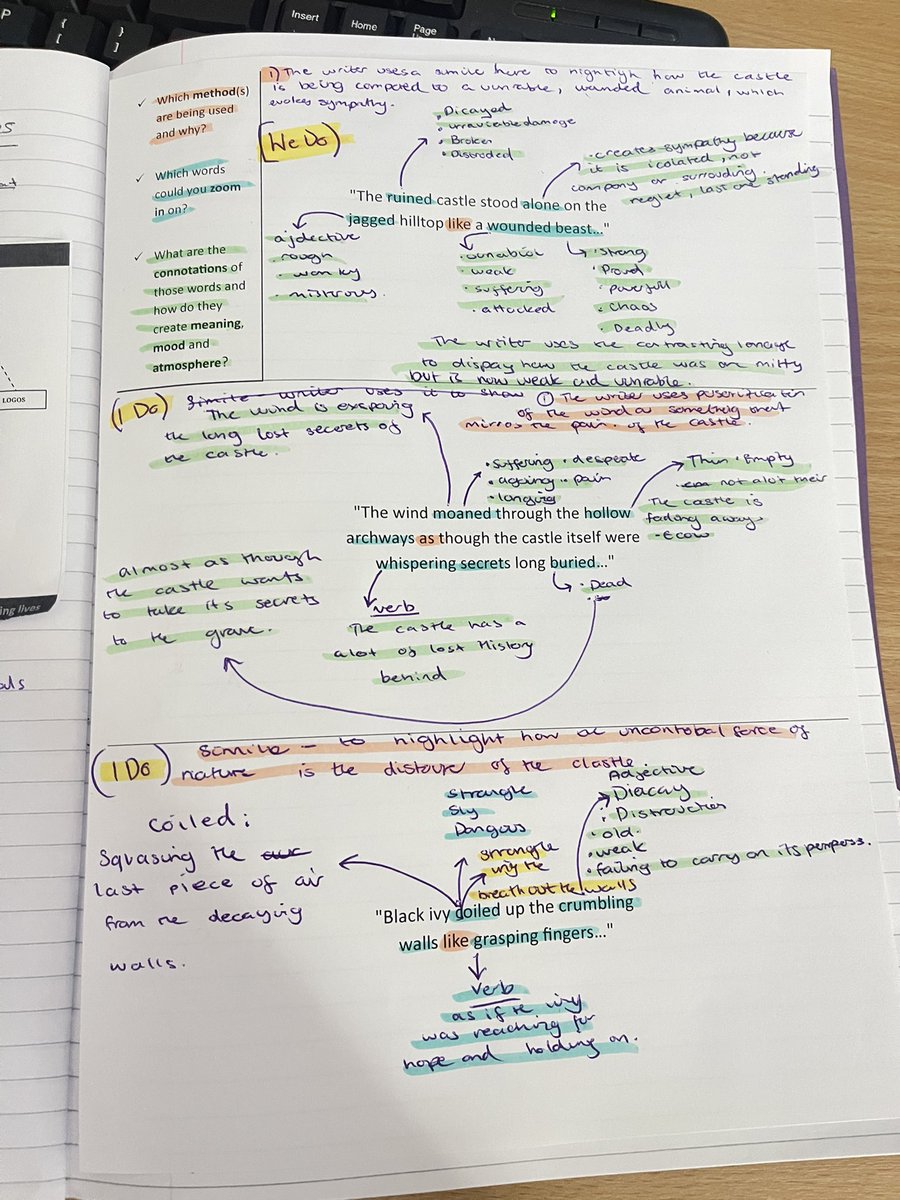 P
{
[
}
]
Insert
Home
Page
LOGOS
ing lives
✓ Which method(s)
are being used
and why?
✓ Which words
could you zoom
in on?
✓ What are the
connotations of
those words and
how do they
create meaning,
mood and
atmosphere?
1) The writer uses a simile here to highligh how the castle
is being compared to a vunrable, wounded animal, which
evokes sympathy.
We Do
• Dicayed
• unraviable damage
• Broken
• Distroded
• creates sympathy because
it is icolated, not
company or surrouding
neglet, last one standing
"The ruined castle stood alone on the
jagged hilltop like a wounded beast..."
ajdective
• rough
• wonky
• misterous.
• vunrabial
• weak
• suffering
• attacked
• Strong
• Proud
• Powerfull
• Chaos
• Deadly
The writer uses the contrasting
to dispay how the castle was one mitty
but is now weak and vunrable.
I Do
Simile - writer uses it to show
The wind is exspoving
the long lost secrets of
the castle.
① The writer uses
of the word as something that
mirros the pain of the castle.
• suffering • despeate
• ageing • pain
• longing
• Thin • Empty
not alot their
The castle is
fading away.
- Ecow
"The wind moaned through the hollow
archways as though the castle itself were
whispering secrets long buried..."
almost as though
the castle wants
to take its secrets
to the grave.
verb
The castle has a
alot of lost History
behind
• Dead
I Do
Simmile - to highlight how a uncontobal force of
nature is the distoure of the clastle.
Strangle
Sly
Dangous
strangle
ing the
breath out the walls
Adjective
• Diacay
• Distruction
• old.
• weak
• failing to carry on its perpers.
Coiled:
Squasing the
last piece of air
from the decaying
walls.
"Black ivy coiled up the crumbling
walls like grasping fingers..."
Verb
as if the ivy
was reaching for
hope and holding on.